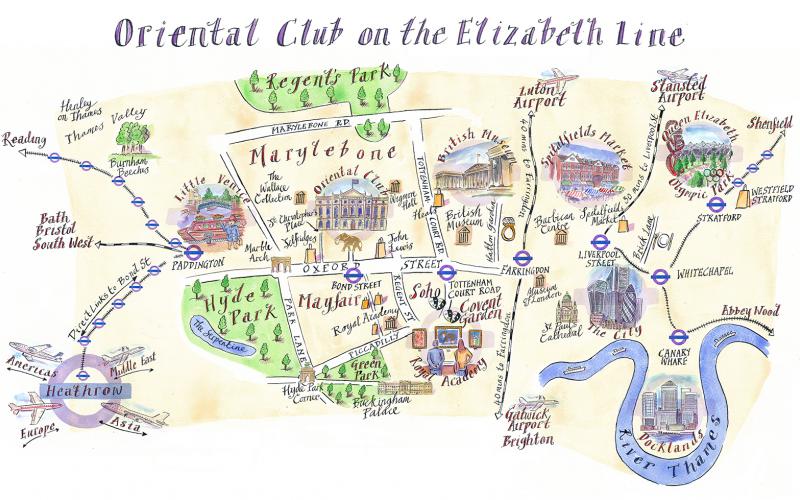 Oriental Club on the Elizabeth Line
Regent's Park
Luton
Airport
Stansted
Airport
Henley
on Thames
Thames Valley
Reading
Burnham
Beeches
MARYLEBONE RD.
Marylebone
British Museum
Spitalfields Market
Queen Elizabeth
Olympic Park
Shenfield
Little Venice
The
Wallace
Collection
Oriental Club
Wigmore
Hall
TOTTENHAM
COURT RD
40 mins to Farringdon
30 mins to Liverpool St
WESTFIELD
STRATFORD
STRATFORD
Bath
Bristol
South West
St. Christopher's
Place
Selfridges
John
Lewis
British
Museum
Hatton Garden
Barbican
Centre
Spitalfields
Market
Brick Lane
PADDINGTON
Marble
Arch
OXFORD STREET
BOND STREET
TOTTENHAM
COURT ROAD
FARRINGDON
LIVERPOOL
STREET
WHITECHAPEL
Direct links to Bond St
Hyde
Park
The Serpentine
PARK LANE
Mayfair
REGENT ST
Royal Academy
Soho
Covent
Garden
Museum
of London
St Paul's
Cathedral
The City
Abbey Wood
CANARY
WHARF
PICCADILLY
Green
Park
Royal Academy
Americas
Middle East
Heathrow
Europe
Asia
Hyde Park
Corner
Buckingham
Palace
40 mins to Farringdon
Gatwick
Airport
Brighton
Docklands
River Thames